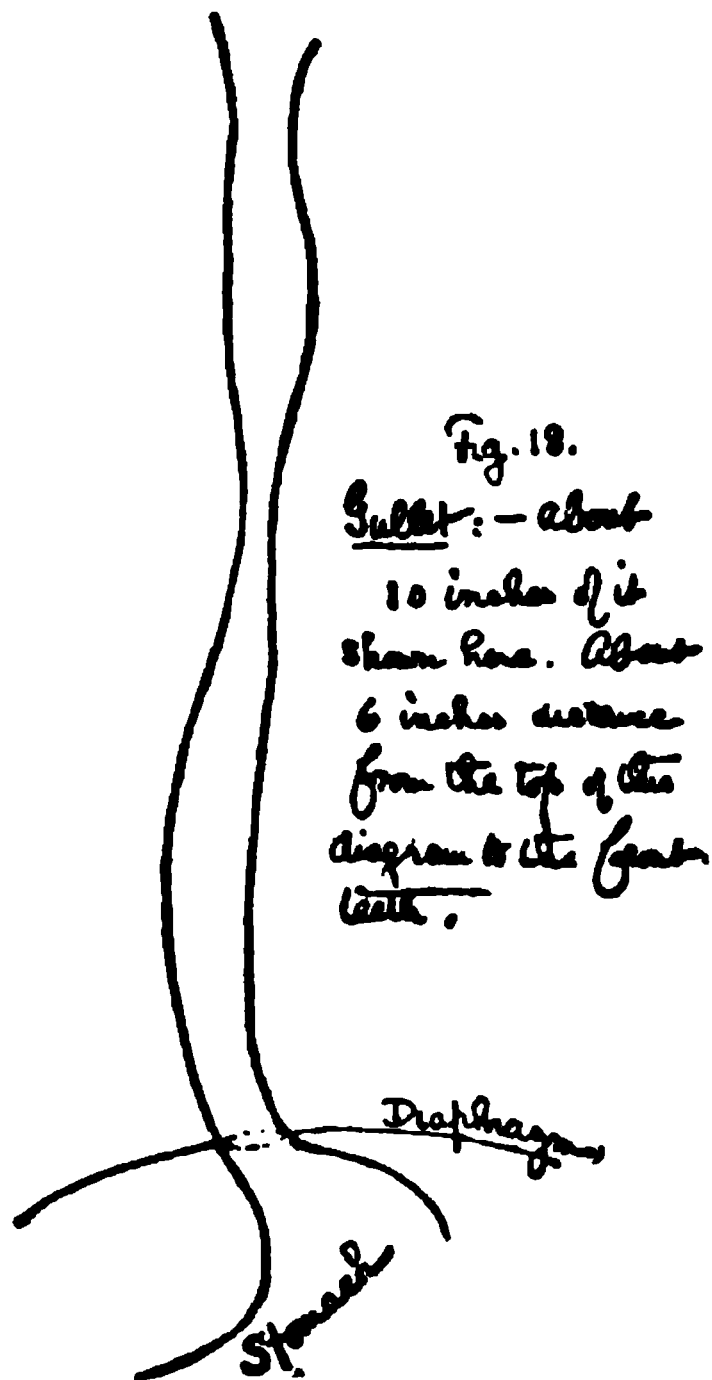 Fig. 18.
Gullet: — About
10 inches of it
shown here. About
6 inches distance
from the top of this
diagram to the front
teeth.
Diaphragm
Stomach